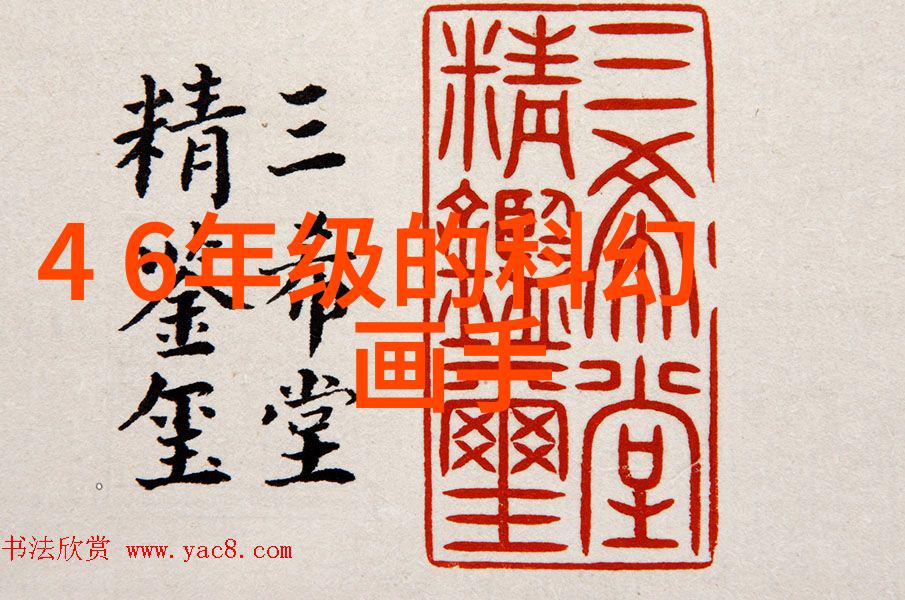 三希堂
精鑑璽
三希堂
精鉴玺
4 6年级的科幻
画手
书法欣赏 www.yac8.com